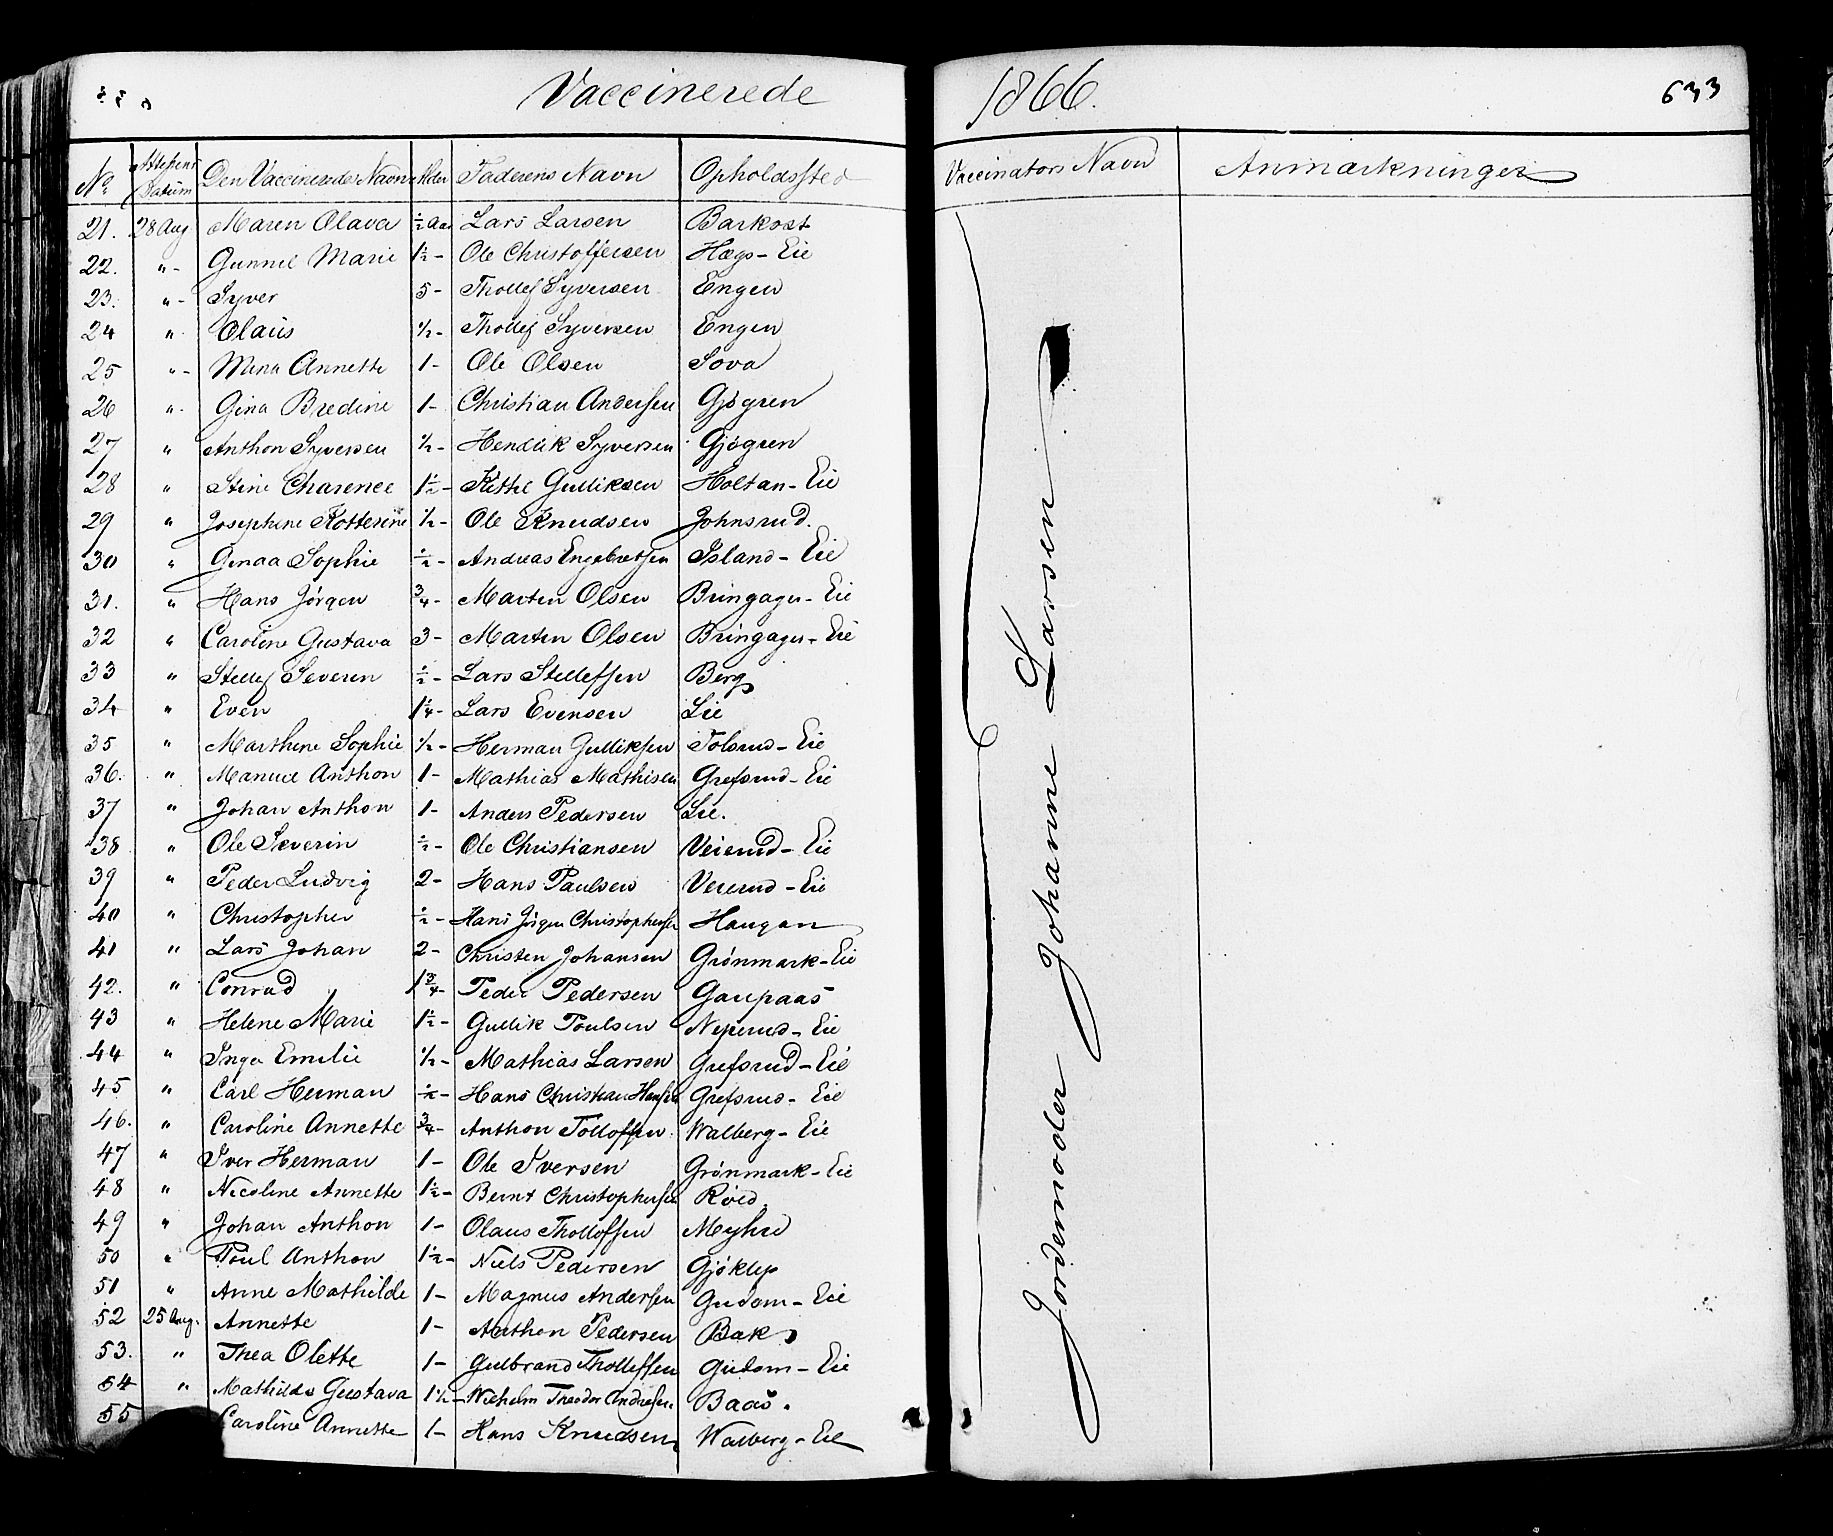 Vaccinerede 1866. 633
No | Attestens Datum | Den Vaccineredes Navn | Alder | Faderens Navn | Opholdssted | Vaccinators Navn | Anmærkninger
21. | 28 Aug | Maren Olava | ½ Aar | Lars Larsen | Barkost
22. | " - | Gunnil Marie | 1½ - | Ole Christoffersen | Hægs - Eie
23. | " - | Syver | 5 - | Thollef Syversen | Engen
24 | " | Olaus | ½ - | Thollef Syversen | Engen
25 | " - | Mina Annette | 1 - | Ole Olsen | Sova
26 | " | Gina Bredine | 1 - | Christian Andersen | Gjøgren
27 | " | Anthon Syversen | ½ - | Hendrik Syversen | Gjøgren
28 | " | Stine Charence | 1½ - | Kittil Gulliksen | Holtan - Eie
29 | " | Josephine Kotterine | ½ - | Ole Knudsen | Johnsrud.
30 | " | Ginaa Sophie | ½ - | Andreas Engebretsen | Island - Eie
31. | " | Hans Jørgen | ¾ - | Marten Olsen | Bringager - Eie
32 | " | Caroline Gustava | 3 - | Marten Olsen | Bringager - Eie
33 | " | Stellef Severin | ½ - | Lars Stellefsen | Berg
34 | " | Even | 1¼ - | Lars Evensen | Lie
35 | " | Marthine Sophie | ½ - | Herman Gulliksen | Tolsrud - Eie
36. | " | Manuel Anthon | 1 - | Mathias Mathisen | Grefsrud - Eie
37 | " | Johan Anthon | 1 - | Anders Pedersen | Lie.
38 | " | Ole Severin | ½ - | Ole Christiansen | Veierud - Eie
39 | " | Peder Ludvig | 2 - | Hans Paulsen | Veierud - Eie
40 | " | Christopher | ½ - | Hans Jørgen Christophersen | Haugan
41 | " | Lars Johan | 2 - | Christen Johansen | Grønmark - Eie
42. | " | Conrad | 1¾ - | Peder Pedersen | Gaupaas
43 | " | Helene Marie | 1½ - | Gullik Poulsen | Neperud - Eie
44 | " | Inga Emilie | ½ - | Mathias Larsen | Grefsrud - Eie
45 | " | Carl Herman | ½ - | Hans Christian Hansen | Grefsrud - Eie
46. | " | Caroline Annette | ¾ - | Anthon Tollofsen | Walberg - Eie
47 | " | Iver Herman | 1 - | Ole Iversen | Grønmark - Eie
48 | " | Nicoline Annette | 1½ - | Bernt Christophersen | Røed
49 | " | Johan Anthon | 1 - | Olaus Thollofsen | Myhre
50 | " | Poul Anthon | 1½ - | Niels Pedersen | Gjøklep
51 | " | Anne Mathilde | 1 - | Magnus Andersen | Gudom - Eie
52 | 25 Aug. | Annette | 1 - | Anthon Pedersen | Bak
53. | " | Thea Olette | 1 - | Gulbrand Thollefsen | Gudom - Eie
54 | " | Mathilde Gustava | 1½ - | Wilhelm Theodor Andresen | Baas.
55 | Caroline Annette | 1 - | Hans Knudsen | Walberg - Eie
Jordemoder Johanne Larsen